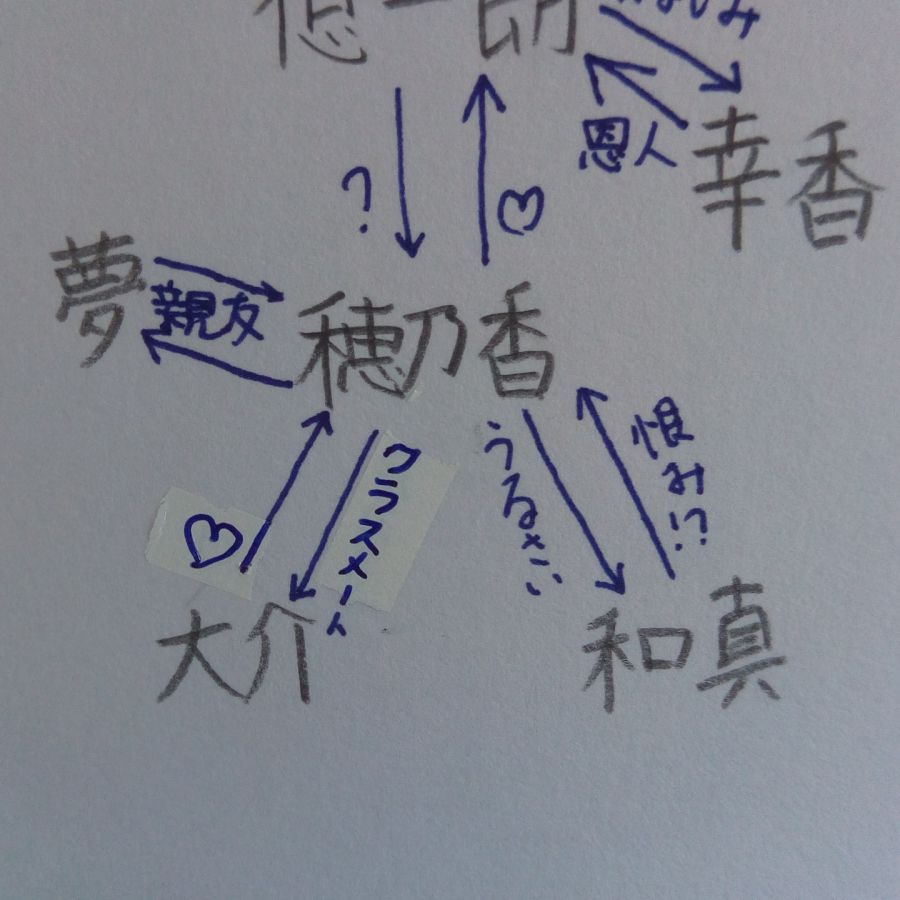 一朗
み
恩人
幸香
?
♡
夢
親友
穂乃香
恨み!?
うるさい
クラスメート
♡
大介
和真